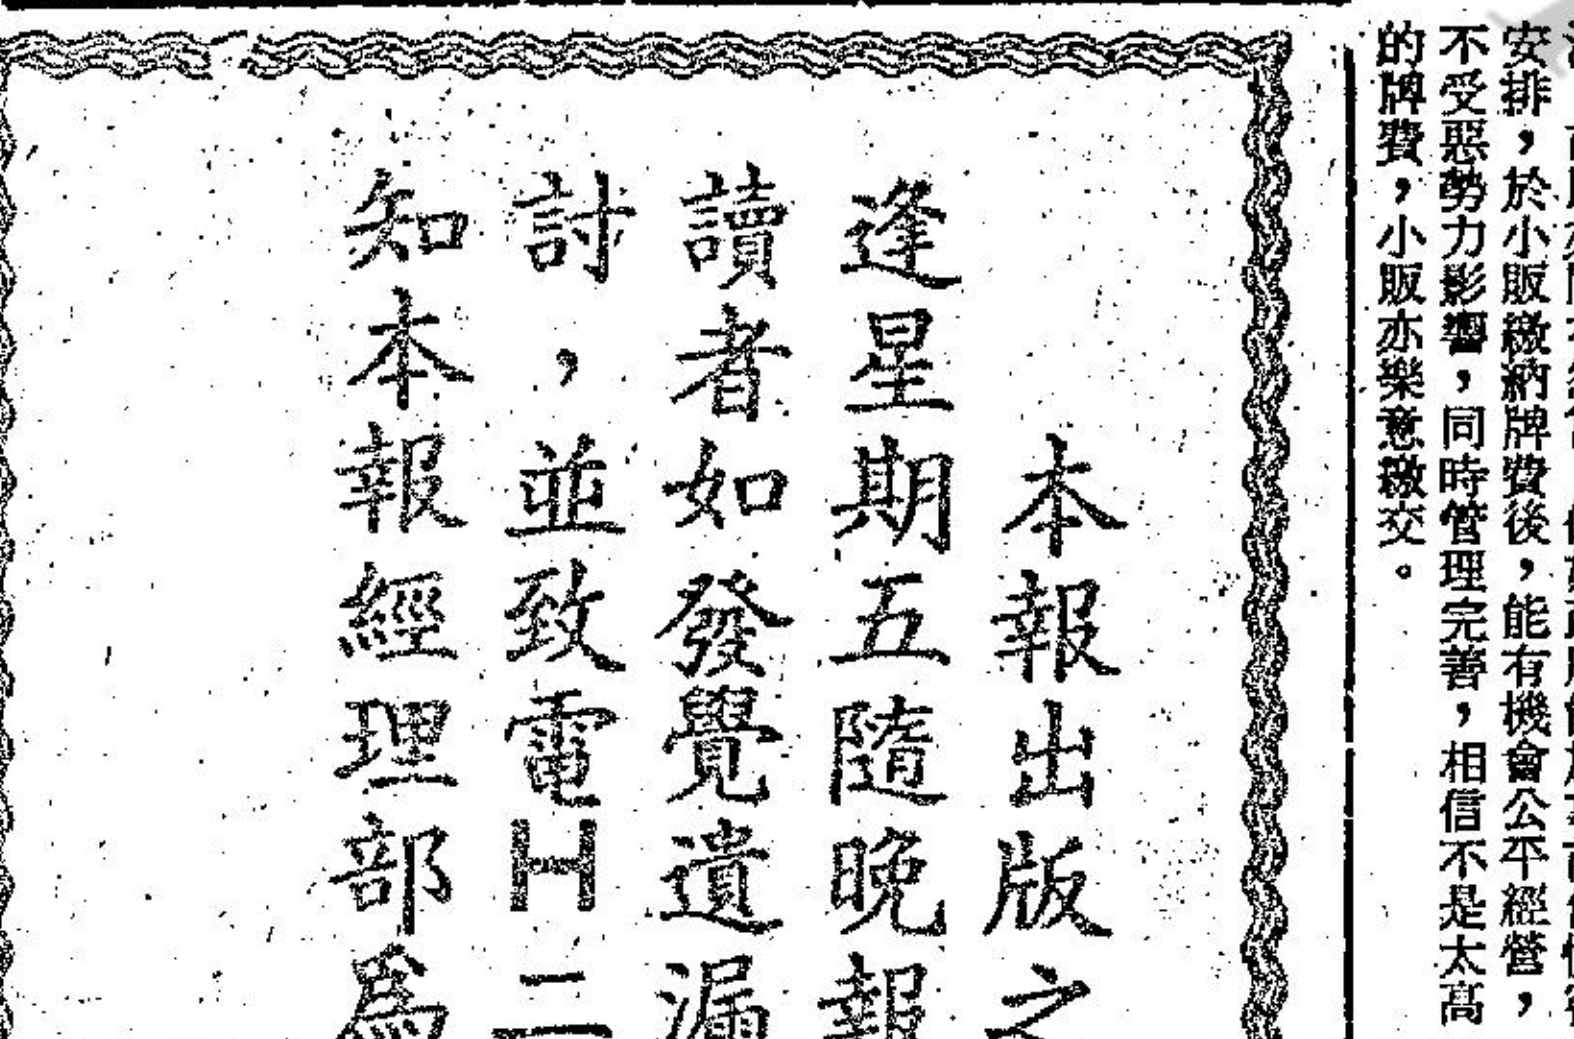 安排，於小販繳納牌費後，能有機會公平經營，
不受惡勢力影響，同時管理完善，相信不是太高
的牌費，小販亦樂意繳交。
本報出版之
逢星期五隨晚報
讀者如發覺遺漏
討，並致電H二
知本報經理部為